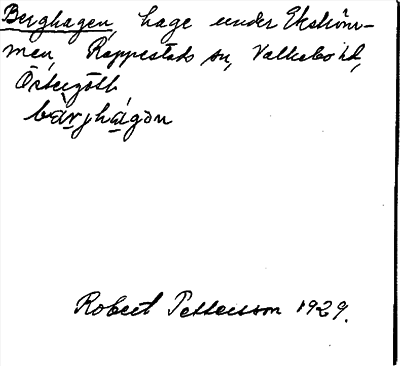 Berghagen, hage under Ekström-
men, Rappestads sn, Valkebo hd,
Östergötl.
bärjhágon
Robert Pettersson 1929.